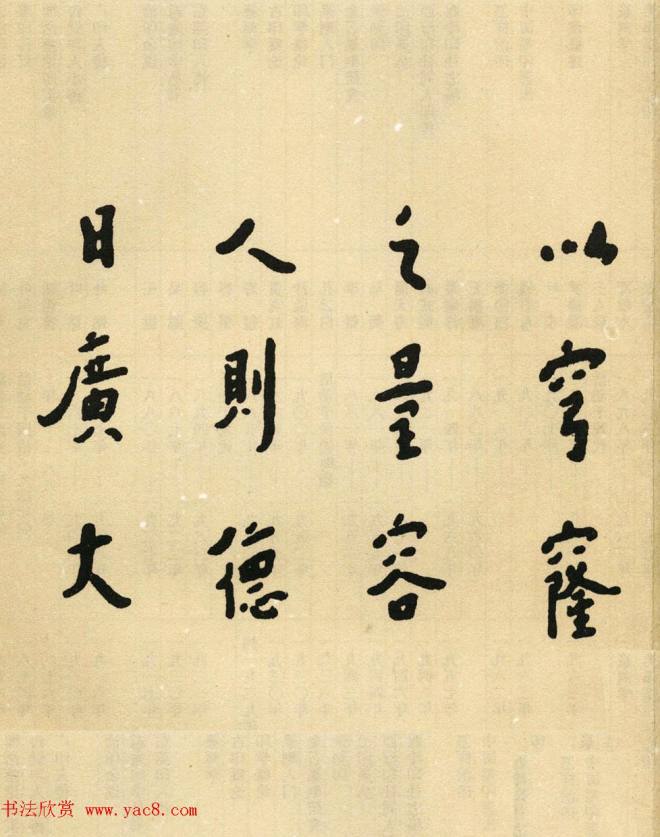 以穹窿
之量容
人則德
日廣大
书法欣赏 www.yac8.com